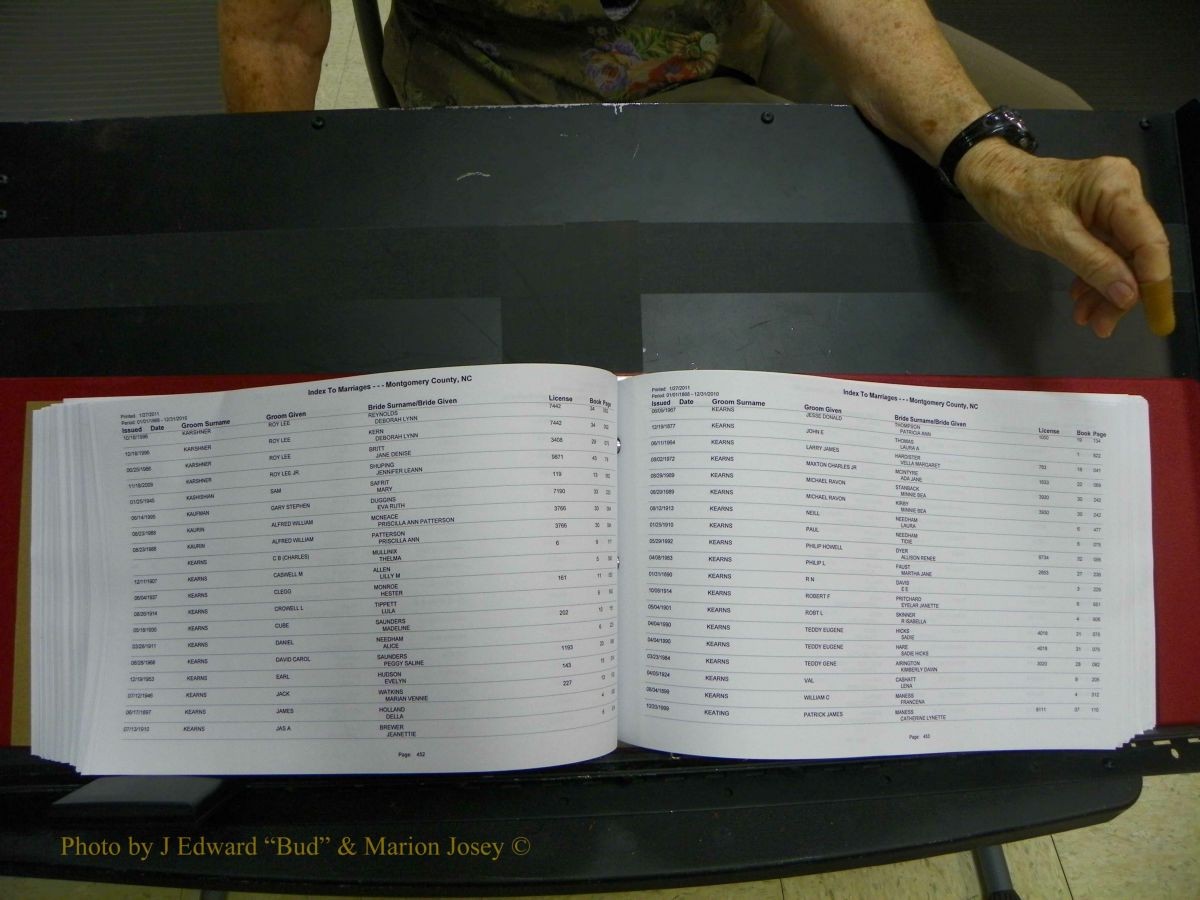 Index To Marriages - - - Montgomery County, NC
Printed: 1/27/2011
Period: 01/01/1868 - 12/31/2010
Issued Date Groom Surname Groom Given Bride Surname/Bride Given License Book Page
10/18/1996 KARSHNER ROY LEE REYNOLDS 7442 34
DEBORAH LYNN
10/18/1996 KARSHNER ROY LEE KERN 7442 34
DEBORAH LYNN
06/25/1986 KARSHNER ROY LEE BRITT 3408 29
JANE DENISE
11/18/2009 KARSHNER ROY LEE JR. SHUPING 9871 43
JENNIFER LEANN
01/25/1945 KASHISHIAN SAM SAFRIT 119 13
MARY
06/14/1995 KAUFMAN GARY STEPHEN DUGGINS 7190 33
EVA RUTH
08/23/1988 KAURIN ALFRED WILLIAM MCNEACE 3766 30
PRISCILLA ANN PATTERSON
08/23/1988 KAURIN ALFRED WILLIAM PATTERSON 3766 30
PRISCILLA ANN
KEARNS C B (CHARLES) MULLINIX 6 9
THELMA
12/11/1907 KEARNS CASWELL M ALLEN 5
LILLY M
06/04/1937 KEARNS CLEGG MONROE 161 11
HESTER
08/20/1914 KEARNS CROWELL L TIPPETT
LULA
KEARNS CUBE SAUNDERS 202 10
MADELINE
03/26/1911 KEARNS DANIEL NEEDHAM 6
ALICE
06/28/1968 KEARNS DAVID CAROL SAUNDERS 1193
PEGGY SALINE
12/19/1953 KEARNS EARL HUDSON 143
EVELYN
07/12/1946 KEARNS JACK WATKINS 227
MARIAN VENNIE
06/17/1897 KEARNS JAMES HOLLAND
DELLA
07/13/1910 KEARNS JAS A BREWER
JEANETTIE
Page: 452
Printed: 1/27/2011
Period: 01/01/1868 - 12/31/2010
Index To Marriages - - - Montgomery County, NC
Issued Date Groom Surname Groom Given Bride Surname/Bride Given License Book Page
06/09/1967 KEARNS JESSE DONALD THOMPSON 19 134
PATRICIA ANN
12/19/1877 KEARNS JOHN E THOMAS 1
LAURA A
06/11/1964 KEARNS LARRY JAMES HARDISTER 763 18 041
VELLA MARGARET
09/02/1972 KEARNS MAXTON CHARLES JR MCINTYRE 22
ADA JANE
08/29/1989 KEARNS MICHAEL RAVON STANBACK 3930 30 242
MINNIE BEA
08/29/1989 KEARNS MICHAEL RAVON KIRBY 3930 30 242
MINNIE BEA
08/12/1912 KEARNS NEILL NEEDHAM 6 477
LAURA
01/25/1910 KEARNS PAUL NEEDHAM
TIDIE
05/29/1992 KEARNS PHILIP HOWELL DYER 32
ALLISON RENEE
04/08/1983 KEARNS PHILIP L FAUST 2653 27
MARTHA JANE
01/21/1890 KEARNS R N DAVIS 3
E E
10/08/1914 KEARNS ROBERT F PRITCHARD
EYELAR JANETTE
05/04/1901 KEARNS ROBT L SKINNER 4
R ISABELLA
04/04/1990 KEARNS TEDDY EUGENE HICKS 4019 31 075
SADIE
04/04/1990 KEARNS TEDDY EUGENE HARE 4019 31 075
SADIE HICKS
03/23/1984 KEARNS TEDDY GENE AIRINGTON 3020 28 092
KIMBERLY DAWN
04/03/1924 KEARNS VAL CASHATT 8
LENA
08/04/1899 KEARNS WILLIAM C MANESS 4 312
FRANCENA
12/20/1999 KEATING PATRICK JAMES MANESS 37
CATHERINE LYNETTE
Page: 453
Photo by J Edward “Bud” & Marion Josey ©